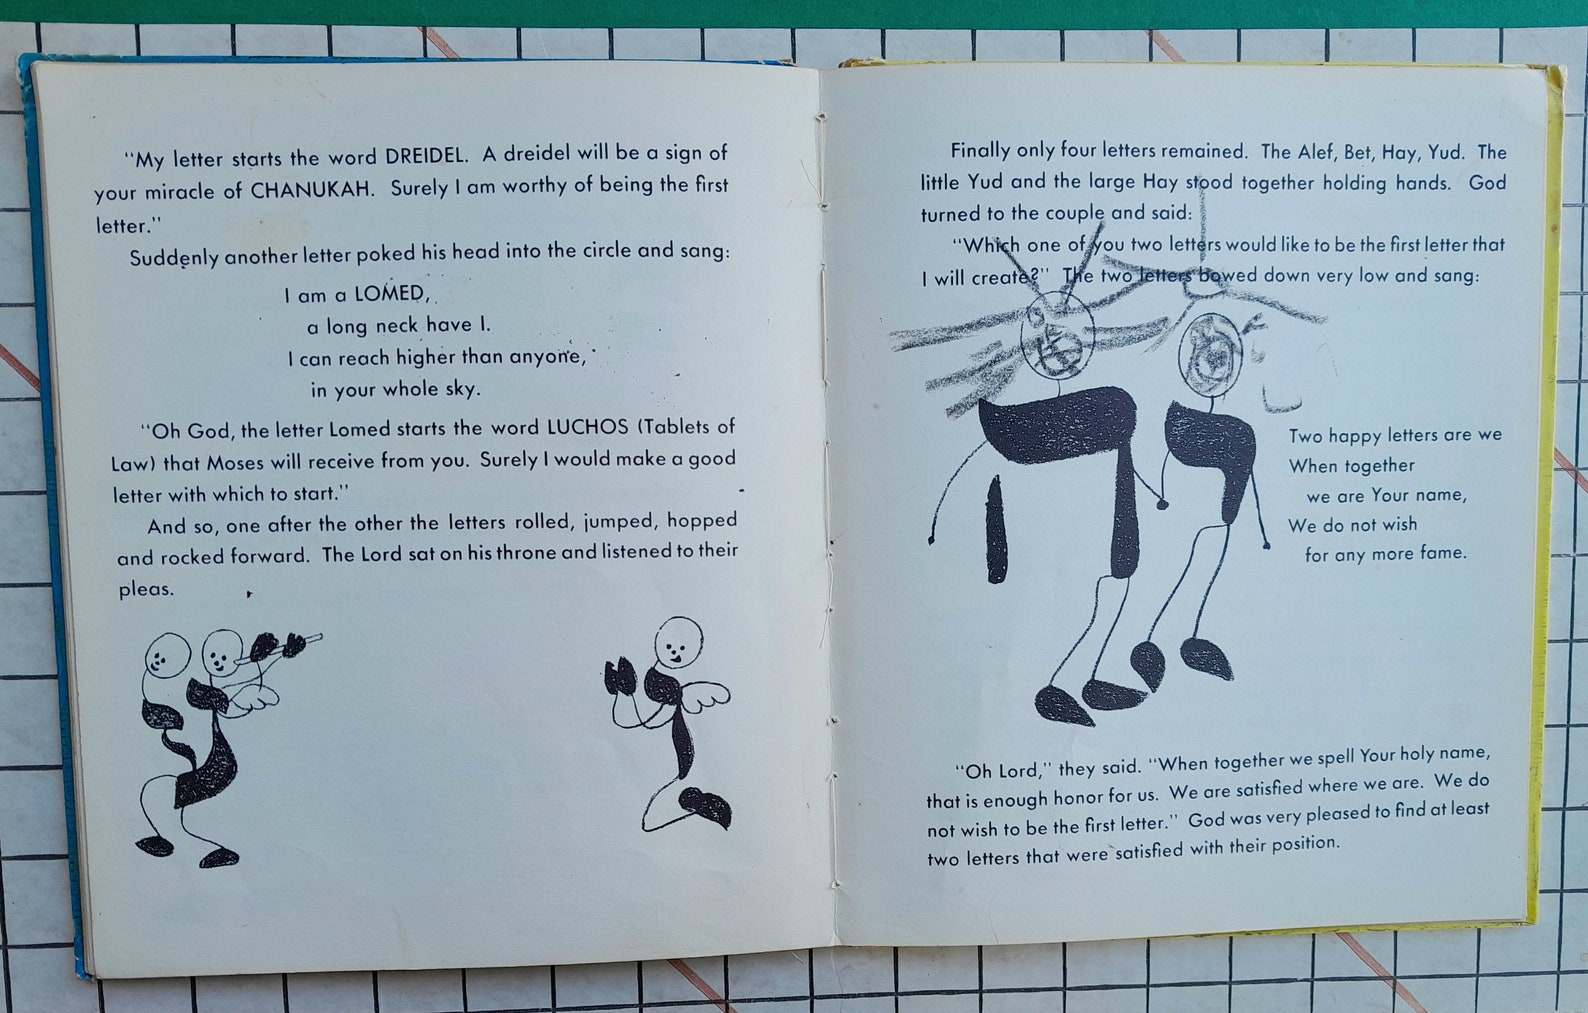 "My letter starts the word DREIDEL. A dreidel will be a sign of
your miracle of CHANUKAH. Surely I am worthy of being the first
letter."
Suddenly another letter poked his head into the circle and sang:
I am a LOMED,
a long neck have I.
I can reach higher than anyone,
in your whole sky.
"Oh God, the letter Lomed starts the word LUCHOS (Tablets of
Law) that Moses will receive from you. Surely I would make a good
letter with which to start."
And so, one after the other the letters rolled, jumped, hopped
and rocked forward. The Lord sat on his throne and listened to their
pleas.
Finally only four letters remained. The Alef, Bet, Hay, Yud. The
little Yud and the large Hay stood together holding hands. God
turned to the couple and said:
"Which one of you two letters would like to be the first letter that
I will create?" The two letters bowed down very low and sang:
Two happy letters are we
When together
we are Your name,
We do not wish
for any more fame.
"Oh Lord," they said. "When together we spell Your holy name,
that is enough honor for us. We are satisfied where we are. We do
not wish to be the first letter." God was very pleased to find at least
two letters that were satisfied with their position.